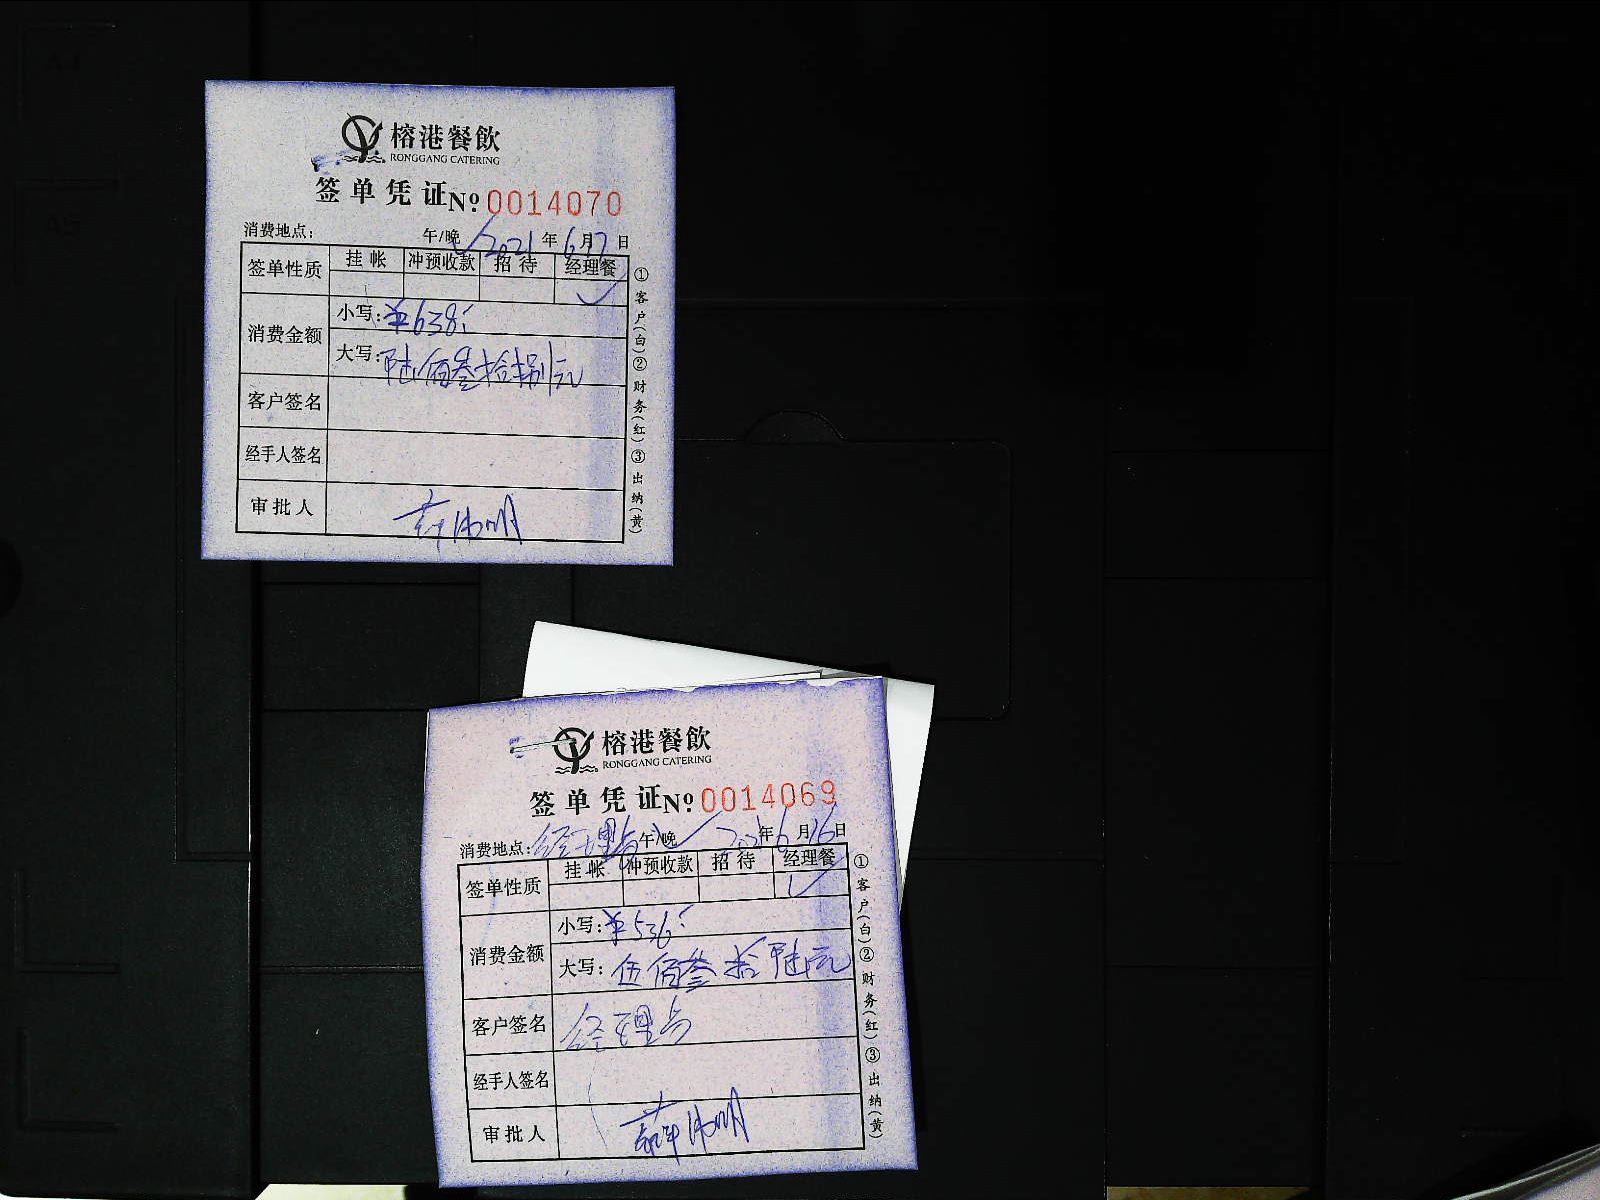 榕港餐飲
RONGGANG CATERING
签单凭证 Nº 0014070
消费地点: 午/晚 ✓ 2021年6月17日
签单性质 挂帐 冲预收款 招待 经理餐
✓
消费金额 小写: ¥638
大写: 陆佰叁拾捌元
客户签名
经手人签名
审批人 薛伟明
①客户(白)②财务(红)③出纳(黄)
榕港餐飲
RONGGANG CATERING
签单凭证 Nº 0014069
消费地点: 经理 午/晚 ✓ 2021年6月16日
签单性质 挂帐 冲预收款 招待 经理餐
✓
消费金额 小写: ¥536
大写: 伍佰叁拾陆元
客户签名 经理
经手人签名
审批人 薛伟明
①客户(白)②财务(红)③出纳(黄)